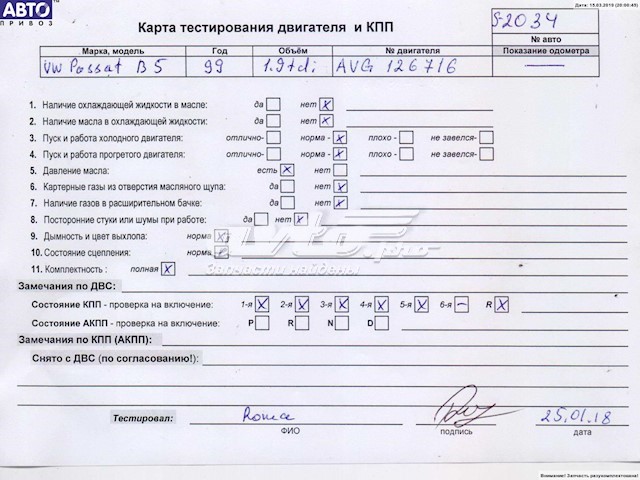 Дата: 15.03.2019 (20:00:45)
АВТО
ПРИВОЗ
Карта тестирования двигателя и КПП
S-2034
№ авто
Марка, модель Год Объём № двигателя Показание одометра
VW Passat B5 99 1.9tdi AVG 126716 —
1. Наличие охлаждающей жидкости в масле: да нет x
2. Наличие масла в охлаждающей жидкости: да нет x
3. Пуск и работа холодного двигателя: отлично- норма - x плохо - не завелся-
4. Пуск и работа прогретого двигателя: отлично- норма - x плохо - не завелся-
5. Давление масла: есть x нет
6. Картерные газы из отверстия масляного щупа: да нет x
7. Наличие газов в расширительном бачке: да нет x
8. Посторонние стуки или шумы при работе: да нет x
9. Дымность и цвет выхлопа: норма x
10. Состояние сцепления: норма
11. Комплектность : полная x
Запчасти найдены
Замечания по ДВС:
Состояние КПП - проверка на включение: 1-я x 2-я x 3-я x 4-я x 5-я x 6-я – R x
Состояние АКПП - проверка на включение: P R N D
Замечания по КПП (АКПП):
Снято с ДВС (по согласованию!):
Тестировал: Roma 25.01.18
ФИО подпись дата
Внимание! Запчасть разукомплектована!